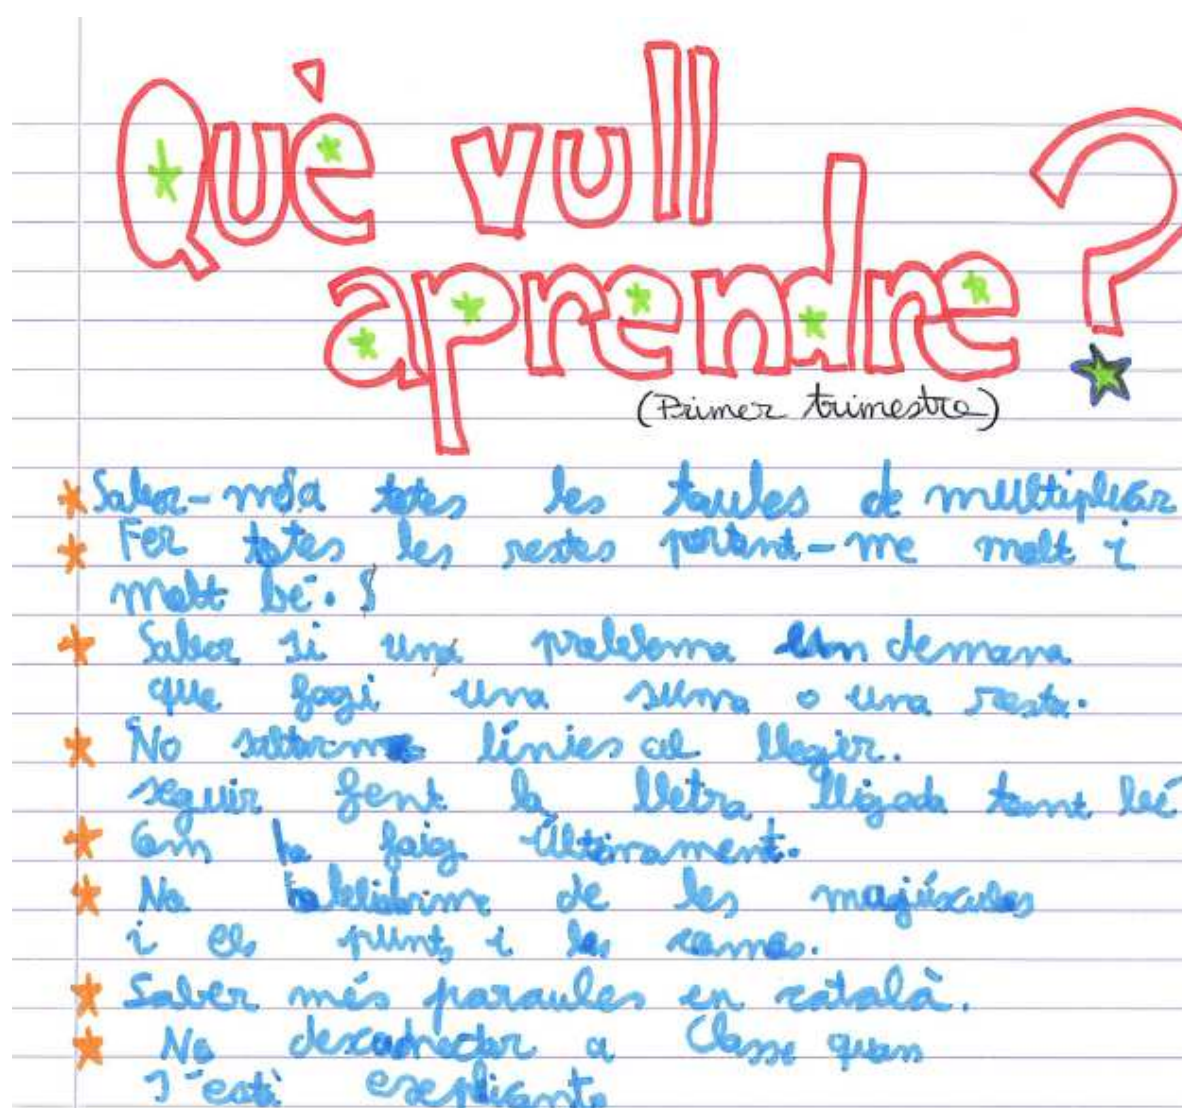 Què vull
aprendre?
(Primer trimestre)
Saber-me totes les taules de multiplicar
Fer totes les restes portant-me molt i
molt bé.
Saber si una problema em demana
que fagi una suma o una resta.
No saltarme línies al llegir.
seguir fent la lletra lligada tant bé
com la faig últimament.
No de les majúscules
i els punts i les comes.
Saber més paraules en català.
No desconectar a Classe quan
s'està explicant